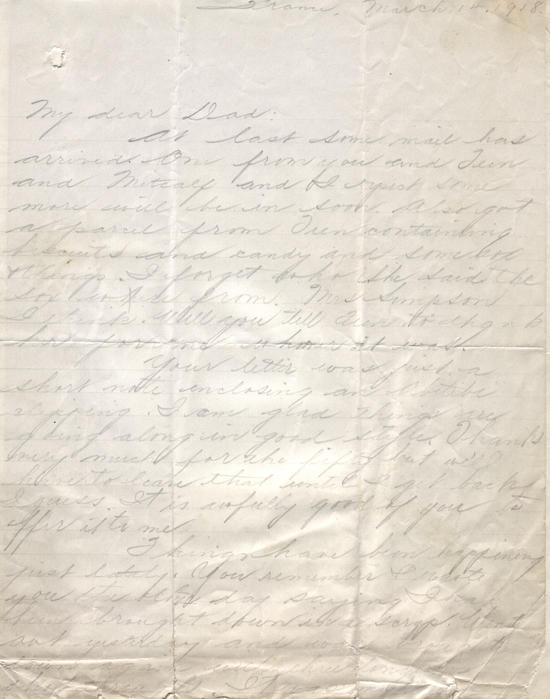 France, March 14, 1918.
My dear Dad:
At last some mail has
arrived. One from you and Teen
and Metcalf and I expect some
more will be in soon. Also got
a parcel from Teen containing
biscuits and candy and some
things. I forget who she said the
sox from. Mrs Simpson
I think. Will you tell Teen to thank
her for me whoever it was.
Your letter was just a
short note enclosing an
clipping. I am glad things are
going along in good style. Thanks
very much for the but will
have to leave that until I get back
I guess. It is awfully good of you to
offer it to me.
Things have been happening
just lately. You remember I wrote
you the other day saying I had
been brought down in a scrap.
out yesterday and